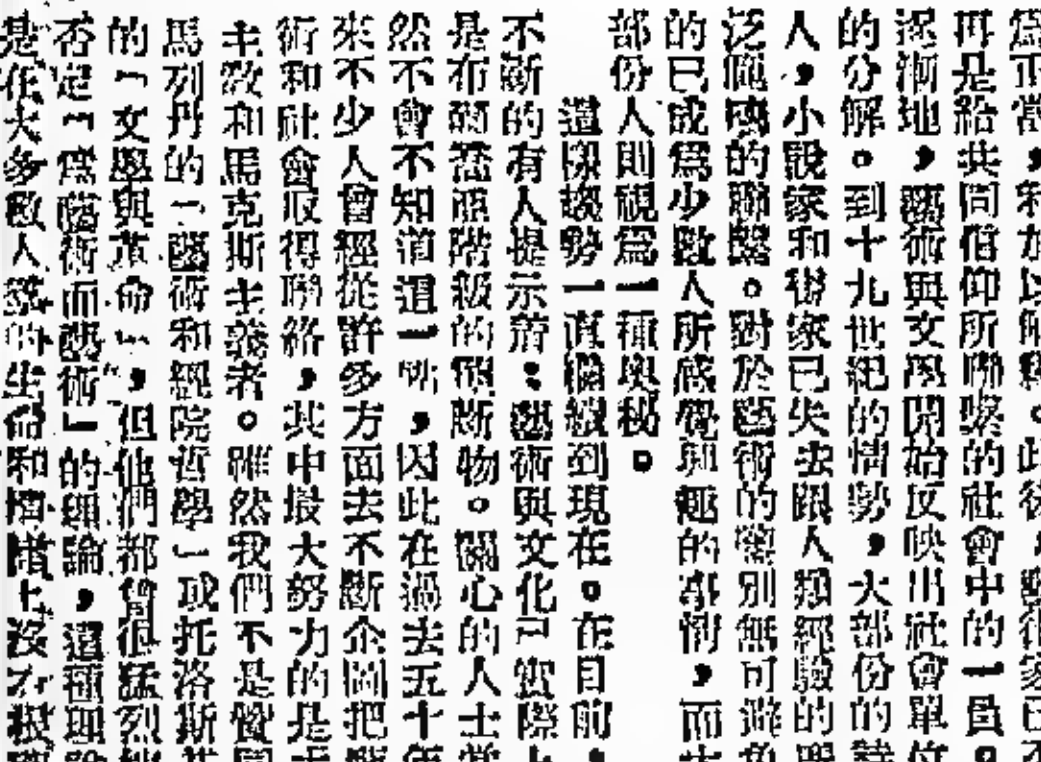 爲正當，和加以解釋。此後，藝術家已不
再是給共同信仰所聯繫的社會中的一員。
逐漸地，藝術與文學開始反映出社會單位
的分解。到十九世紀的情勢，大部份的詩
人，小說家和樹家已失去跟人類經驗的
泛廣的聯繫。對於藝術的鑒別無可避免
的已成爲少數人所感覺興趣的事情，而大
部份人則視爲一種奧秘。
這樣趨勢一直繼續到現在。在目前，
不斷的有人提示着：藝術與文化已實際上
是布爾喬亞階級的壟斷物。關心的人士當
然不會不知道這一點，因此在過去五十年
來不少人曾經從許多方面去不斷企圖把藝
術和社會取得聯絡，其中最大努力的是
主敎和馬克斯主義者。雖然我們不是贊同
馬列丹的「藝術和經院哲學」或托洛斯基
的「文學與革命」，但他們都曾很猛烈地
否定「爲藝術而藝術」的理論，這種理論
是在大多數人的生命和情緒上沒有根